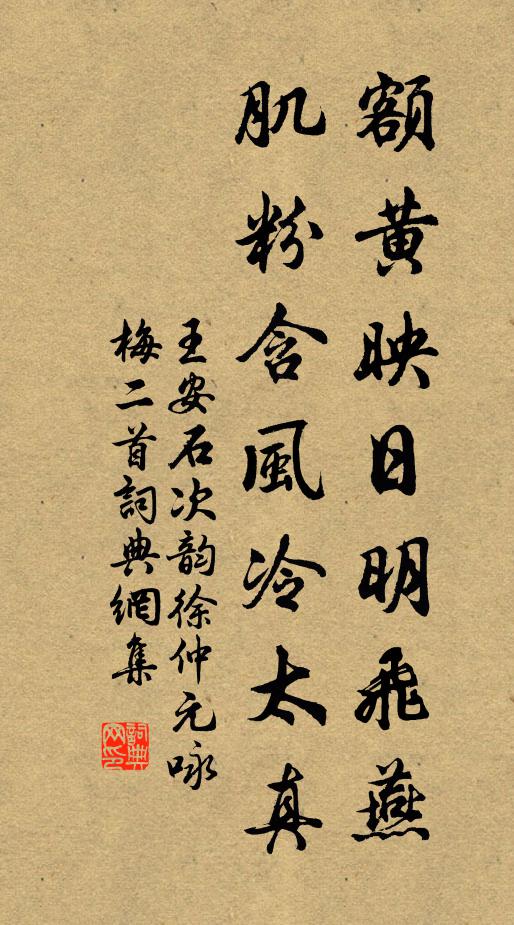 額黄映日明飛燕
肌粉含風冷太真
王安石次韵徐仲元咏
梅二首詞典網集
詞典网印